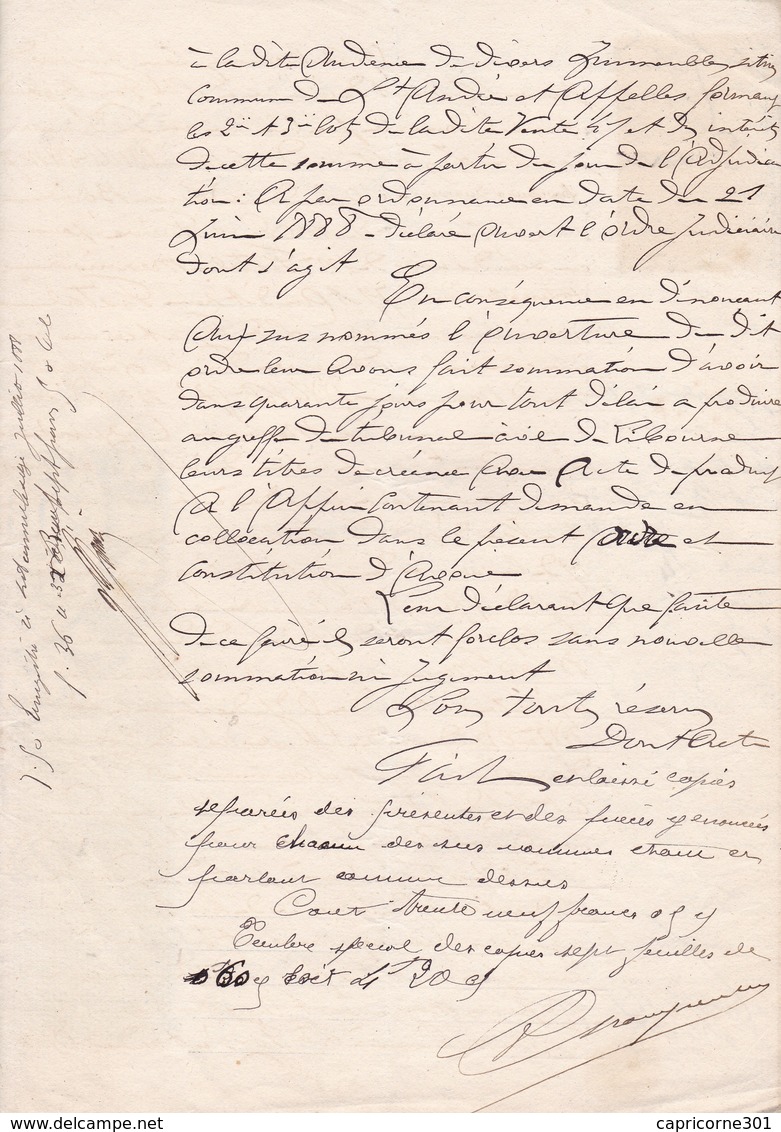 à la dite audience de divers Immeubles situés
commune de St André et Appelles formant
les 2è et 3è lots de la dite Vente et des intérêts
de cette somme à partir du jour de l'Adjudica
tion : A par ordonnance en date du 21
Juin 1888 déclaré ouvert l'ordre Judiciaire
dont s'agit
En conséquence en dénonçant
Aux sus nommés l'ouverture du dit
ordre leur avons fait sommation d'avoir
dans quarante jours pour tout délai a produire
au greffe du tribunal civil de Libourne
leurs titres de créance avec Acte de produit
A l'Affin Contenant demande en
collocation dans le présent ordre et
Constitution d'Avoué
Leur déclarant que faute
de ce faire ils seront forclos sans nouvelle
sommation ni Jugement
Sous toutes réserves
Dont Acte
Fait et laissé copies
séparées des présentes et des pièces y énoncées
pour chacun des sus nommés étant et
parlant comme dessus
Cout trente neuf francs 05 c
Timbre spécial des copies sept feuilles de
0 60 c soit 4f 20 c
Enregistré à juillet 1888
f. 36 c.
capricorne301